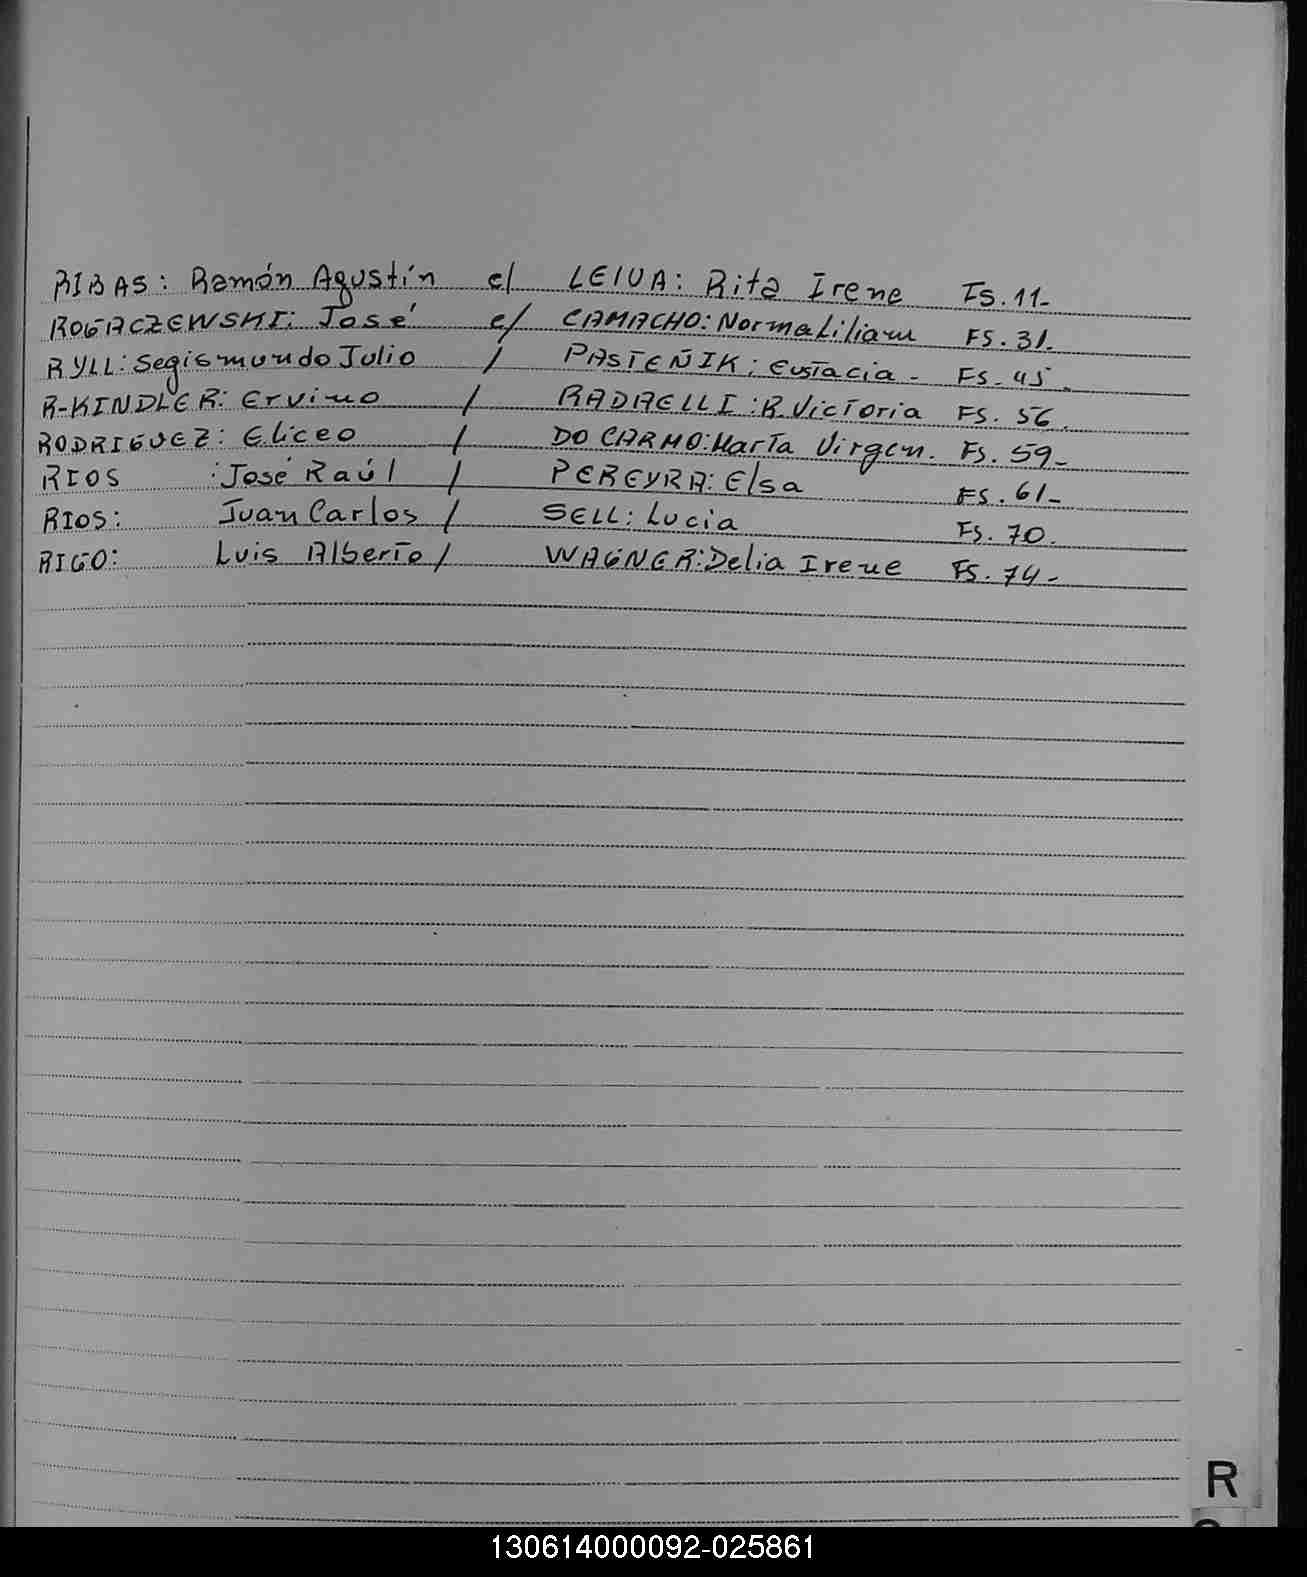 RIBAS: Ramón Agustín c/ LEIVA: Rita Irene Fs. 11-
ROGACZEWSKI: José c/ CAMACHO: Norma Liliam FS. 31.
RYLL: Segismundo Julio / PASTEÑIK: Eustacia - FS. 45.
R-KINDLER: Ervino / RADAELLI: R. Victoria FS. 56.
RODRIGUEZ: Eliceo / DO CARMO: María Virgem. Fs. 59-
RIOS : José Raúl / PEREYRA: Elsa FS. 61-
RIOS: Juan Carlos / SELL: Lucia Fs. 70.
RIGO: Luis Alberto / WAGNER: Delia Irene FS. 74-
R
130614000092-025861